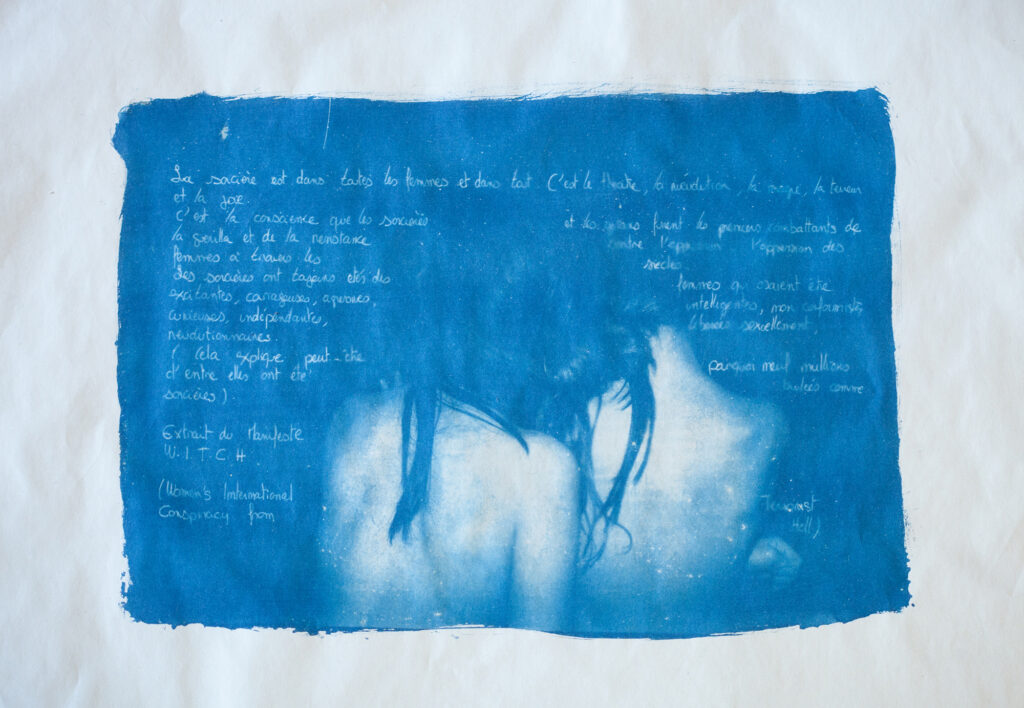 La sorcière est dans toutes les femmes et dans tout. C'est le théatre, la révolution, la magie, la terreur
et la joie.
C'est la conscience que les sorcières et les gitans furent les premiers combattants de
la guerilla et de la resistance contre l'oppression l'oppression des
femmes à travers les siècles
Les sorcières ont toujours étés des femmes qui osaient être
excitantes, courageuses, agressives, intelligentes, non conformistes,
curieuses, indépendantes, libérées sexuellement,
révolutionnaires.
( Cela explique peut-être pourquoi neuf millions
d'entre elles ont été brulées comme
sorcières).
Extrait du Manifeste
W. I. T. C. H
(Women's International Terrorist
Conspiracy from Hell)